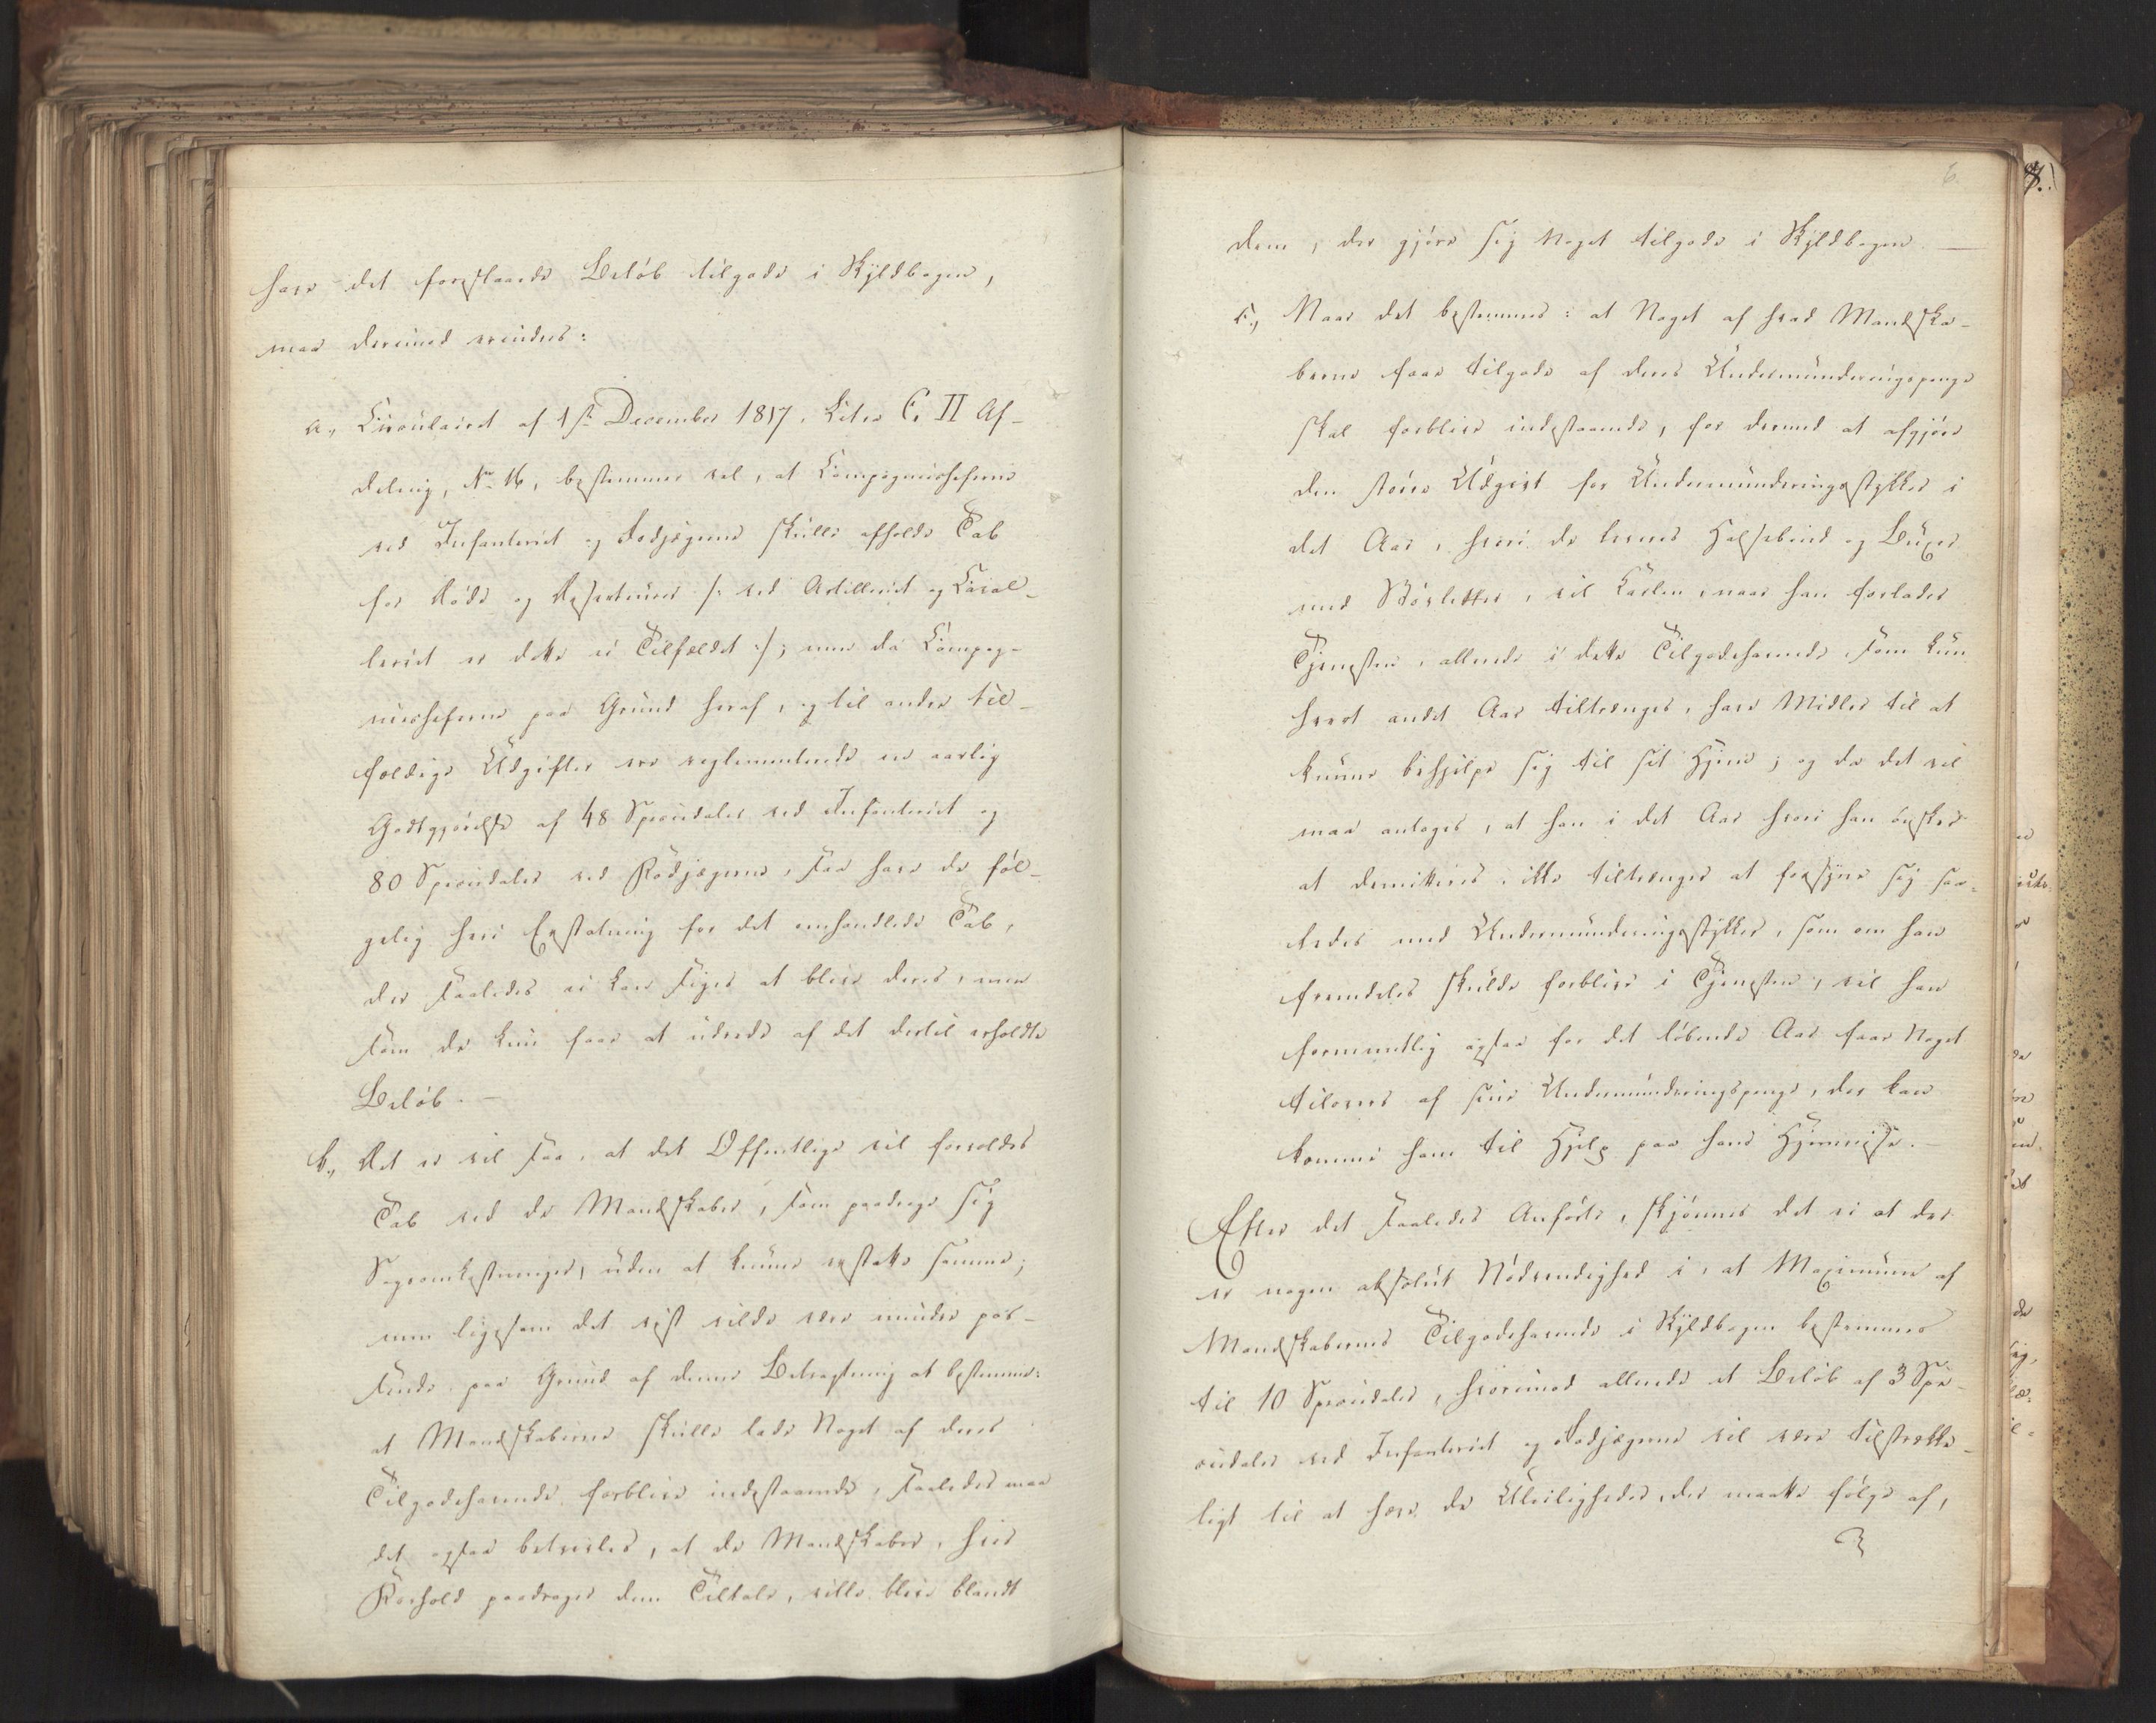 have det forestaaende Beløb tilgode i Skyldbogen,
maa derimod erindres:
a., Circulairet af 1ste December 1817, Litra C. II Af-
deling, No 16, bestemmer vel, at Compagniecheferne
ved Infanteriet og Fodjægerne skulle afholde Tab
for Døde og Deserteurer /: ved Artilleriet og Caval-
leriet er dette ei Tilfældet :/; men da Compag-
niecheferne paa Grund heraf, og til andre til-
fældige Udgifter ere reglementerede en aarlig
Godtgjørelse af 48 Speciedaler ved Infanteriet og
80 Speciedaler ved Fodjægerne, saa have de føl-
gelig heri Erstatning for det omhandlede Tab,
der saaledes ei kan siges at blive deres, men
som de kun faae at udrede af det dertil erholdte
Beløb. —
b., Det er vel saa, at det Offentlige vil forvoldes
Tab ved de Mandskaber, som paadrage sig
Sagsomkostninger, uden at kunne erstatte samme;
men ligesom det vist vilde være mindre pas-
sende paa Grund af denne Betragtning at bestemme:
at Mandskaberne skulle lade Noget af deres
Tilgodehavende forblive indestaaende, saaledes maa
det ogsaa betvivles, at de Mandskaber, hvis
Forhold paadrager dem Tiltale, ville blive blandt
6.
7.
dem, der gjøre sig Noget tilgode i Skyldbogen —
c., Naar det bestemmes: at Noget af hvad Mandska-
berne faae tilgode af deres Undermunderingspenge
skal forblive indestaaende, for dermed at afgjøre
den større Udgivt for Undermunderingsstykker i
det Aar, hvori de levnes Halsebind og Buxer
med Støvletter, vil Karlen, naar han forlader
Tjenesten, allene i dette Tilgodehavende, som kun
hvert andet Aar tiltrænges, have Midler til at
kunne behjelpe sig til sit Hjem; og da det vel
maa antages, at han i det Aar hvori han ønsker
at demitteres, ikke tiltrænger at forsyne sig saa-
ledes med Undermunderingsstykker, som om han
fremdeles skulde forblive i Tjenesten, vil han
formeentlig ogsaa for det løbende Aar faae Noget
tilovers af sine Undermunderingspenge, der kan
komme ham til Hjelp paa hans Hjemreise. —
Efter det saaledes Anførte, skjønnes det ei at der
er nogen absolut Nødvendighed i, at Maximum af
Mandskabernes Tilgodehavende i Skyldbogen bestemmes
til 10 Speciedaler, hvorimod allerede et Beløb af 3 Spe-
ciedaler ved Infanteriet og Fodjægerne vil være tilstrække-
ligt til at hæve de Uleiligheder, der maatte følge af,